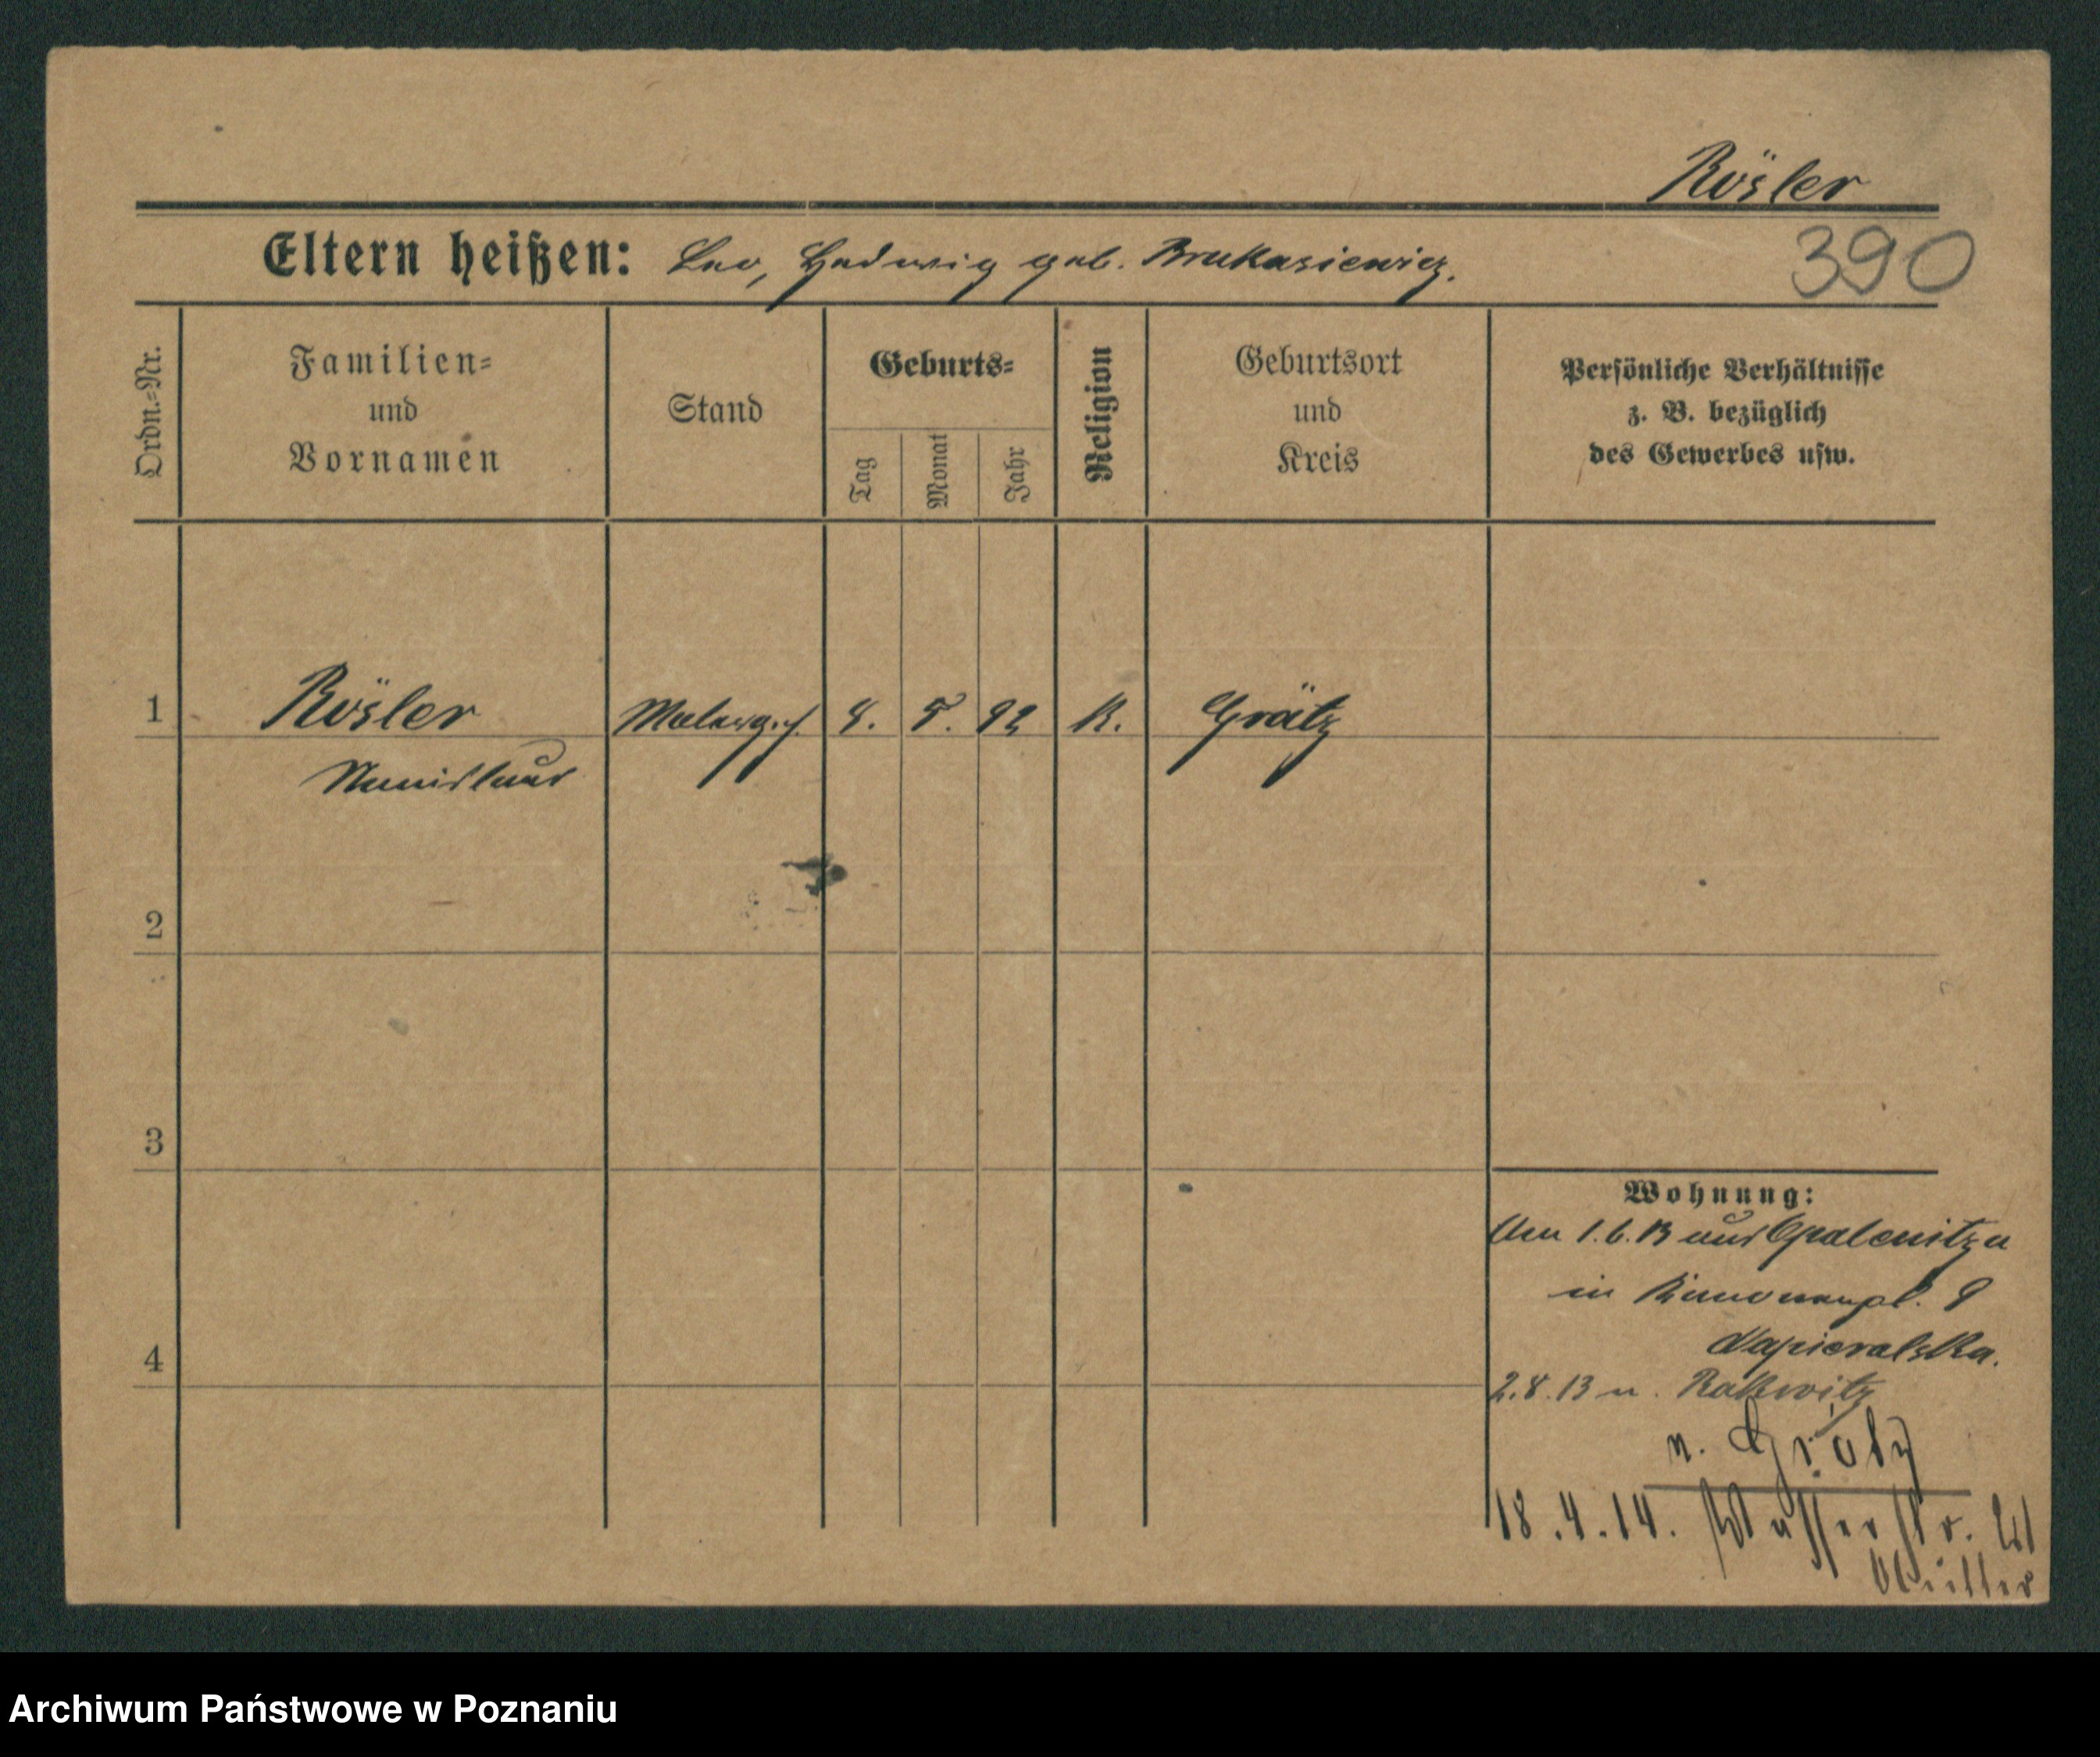 Rösler
390
Eltern heißen: Leo, Hedwig geb. Brukasiewicz.
Ordn.-Nr.
Familien-
und
Vornamen
Stand
Geburts-
Tag
Monat
Jahr
Religion
Geburtsort
und
Kreis
Persönliche Verhältnisse
z. B. bezüglich
des Gewerbes usw.
1 Rösler Malerg. 8. 5. 92 K. Grätz
Stanislaus
2
3
4
Wohnung:
Am 1.6.13 aus Opalenitza
in 9
Napieralska.
2.8.13 n. Rakwitz
n. Grätz
18.4.14. Wasserstr.
Müller
Archiwum Państwowe w Poznaniu